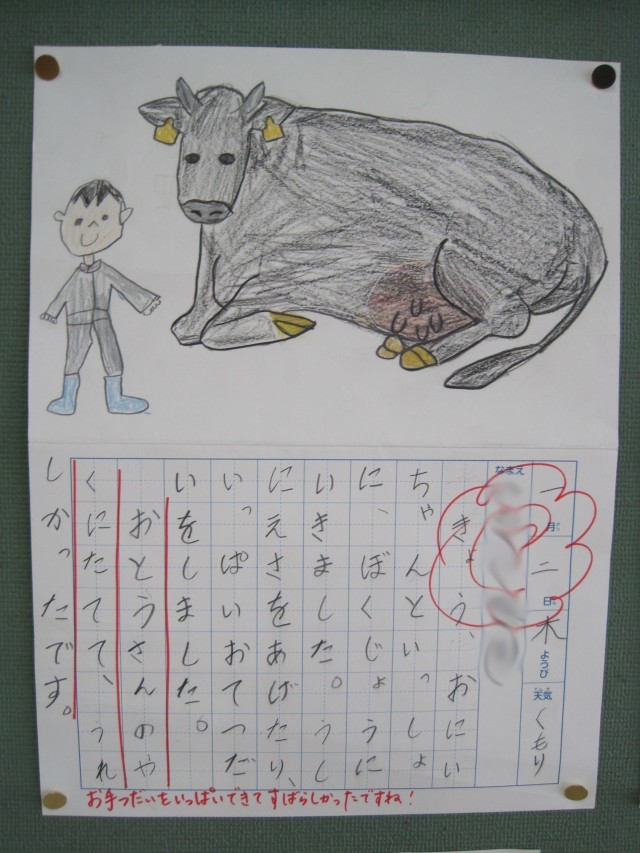 一月二日木ようび 天気 くもり
なまえ
きょう、おにい
ちゃんといっしょ
に、ぼくじょうに
いきました。うし
にえさをあげたり、
いっぱいおてつだ
いをしました。
おとうさんのや
くにたてて、うれ
しかったです。
お手つだいをいっぱいできてすばらしかったですね!